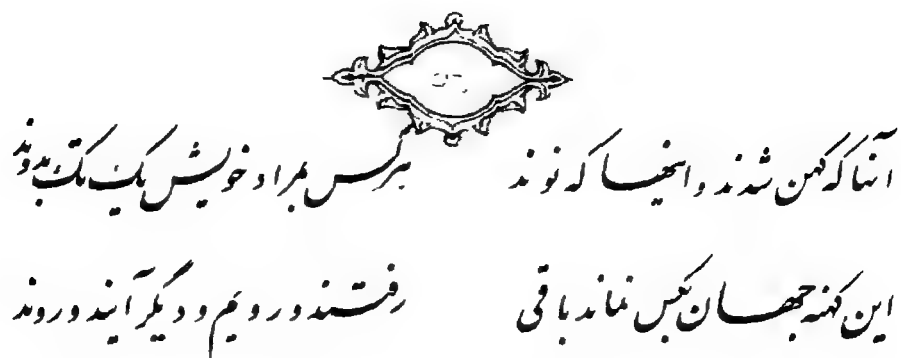 آنها که کهن شدند و اینها که نوند هر کس بمراد خویش یک تک بدوند
این کهنه جهان بکس نماند باقی رفتند و رویم و دیگر آیند و روند